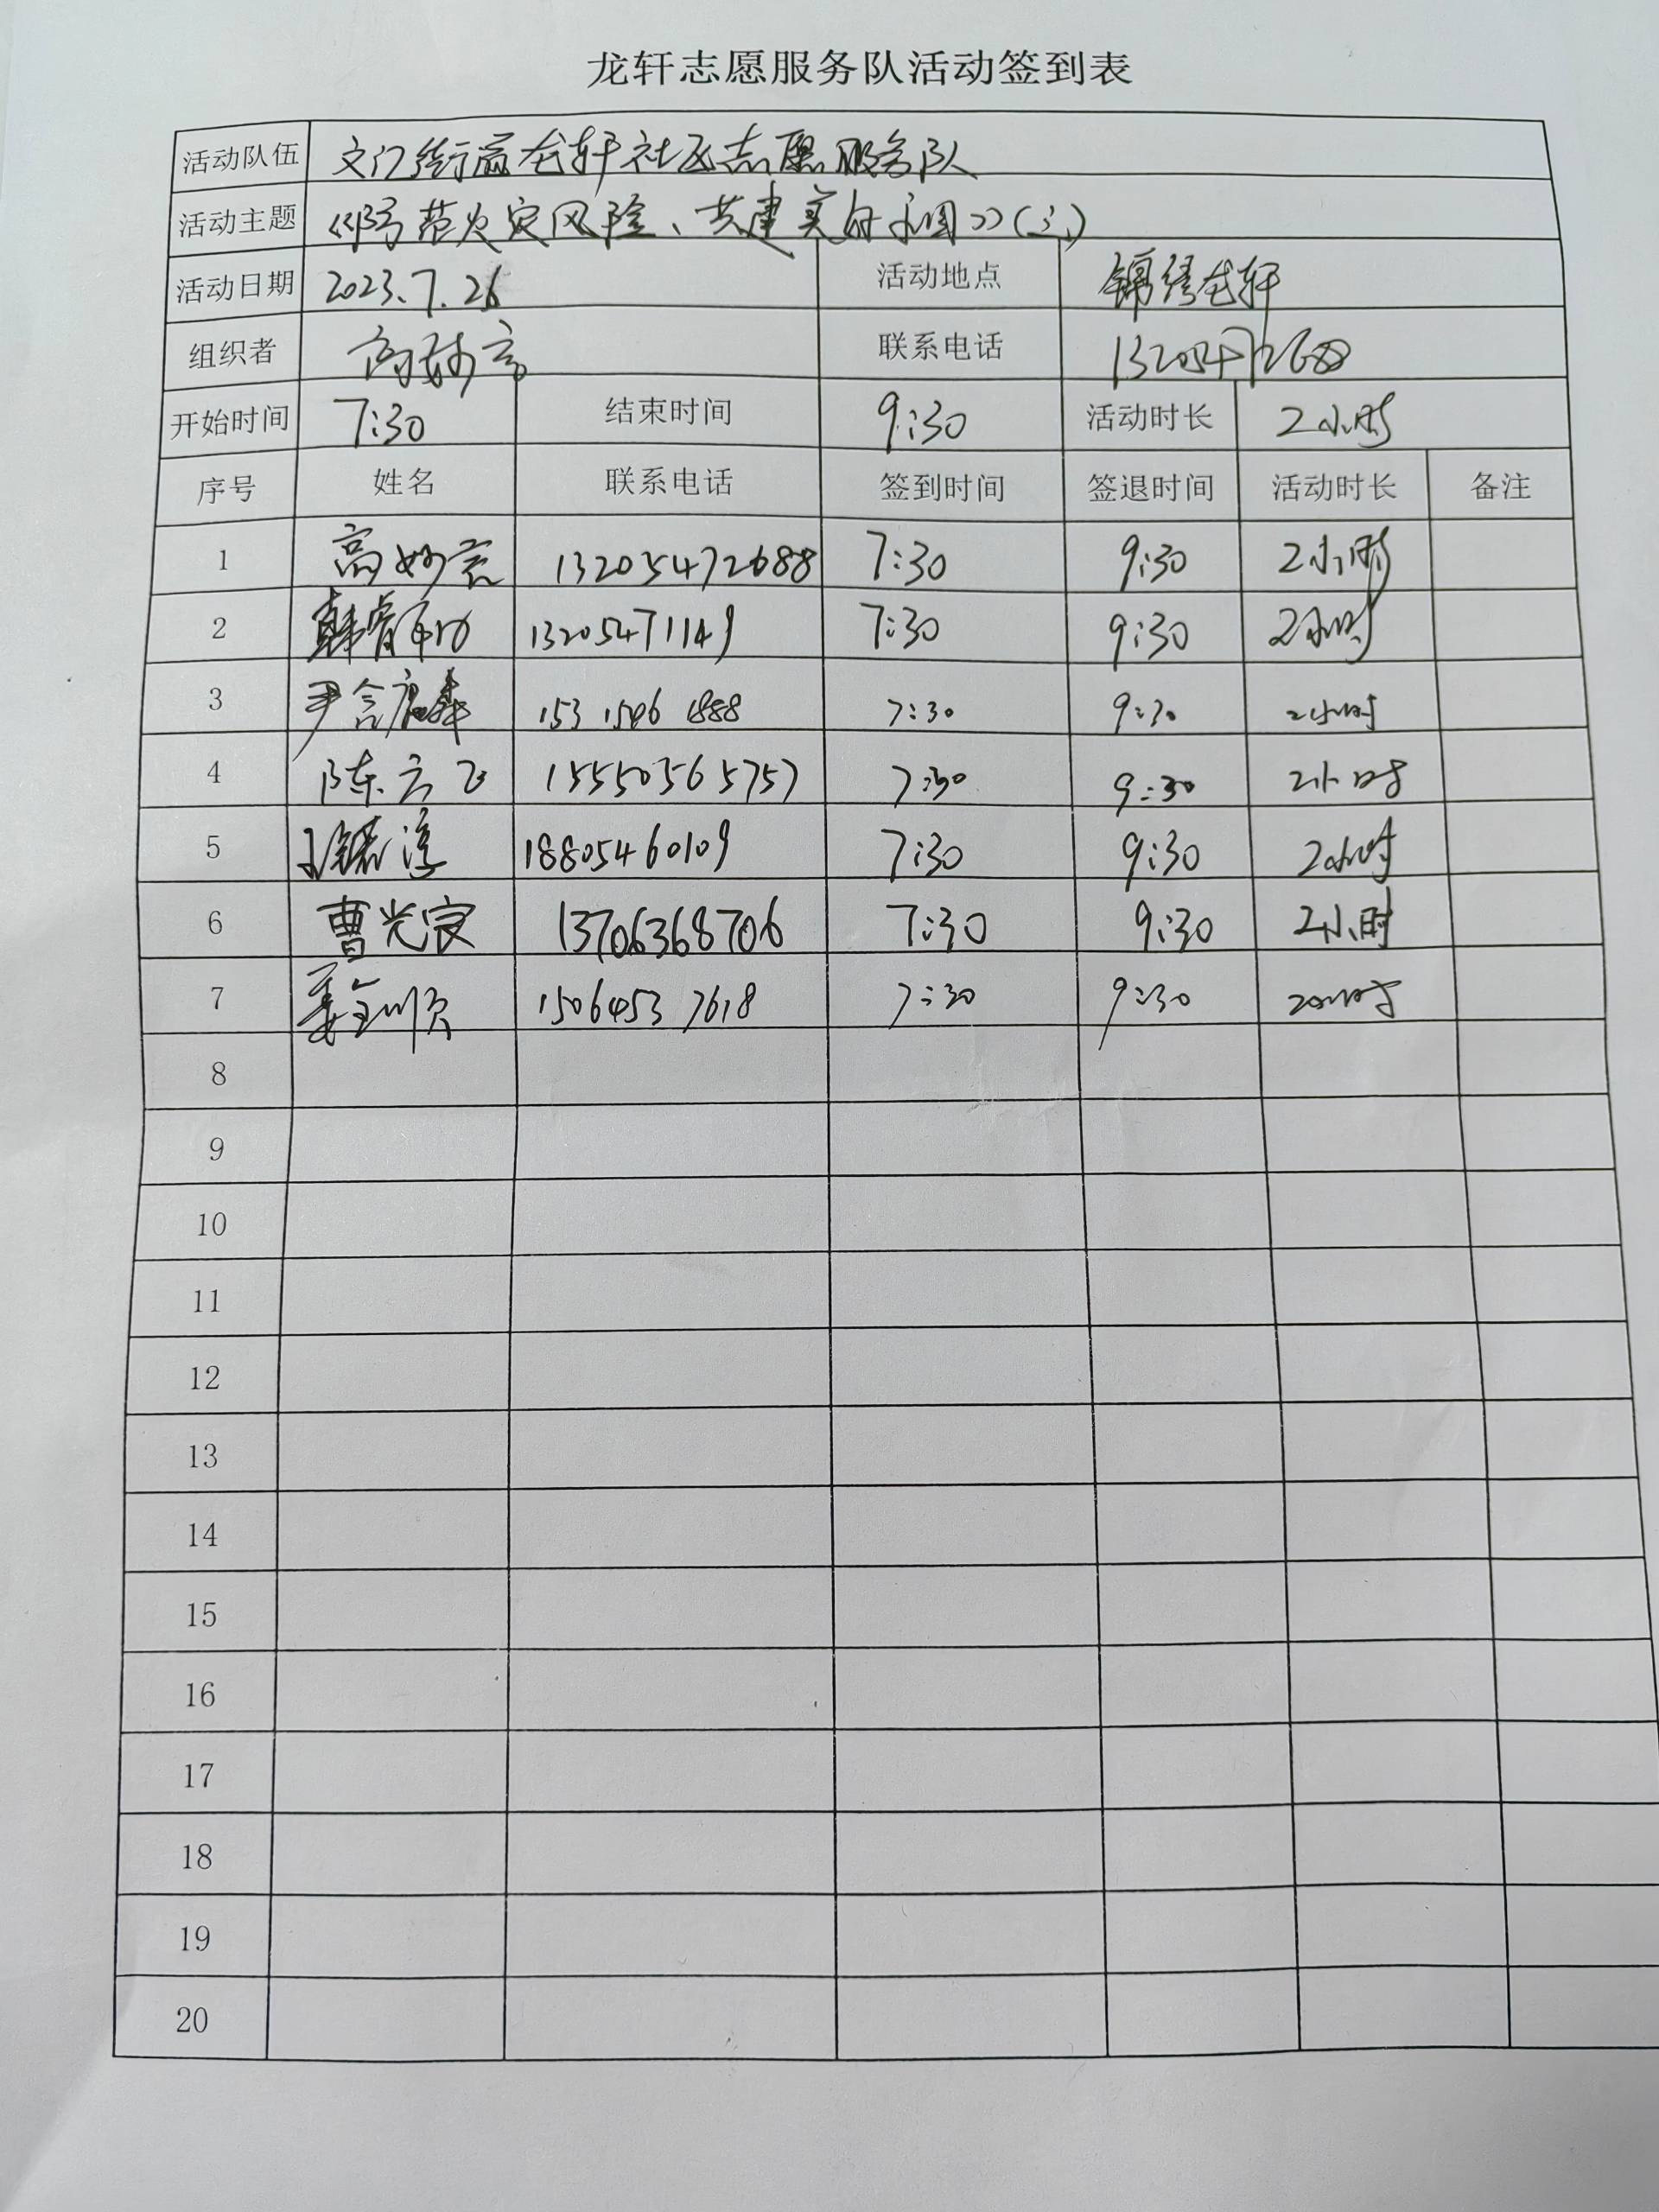 龙轩志愿服务队活动签到表
活动队伍 文门街 龙轩社区志愿服务队
活动主题 《防范火灾风险、共建美好家园》(三)
活动日期 2023.7.26 活动地点 锦绣龙轩
组织者 高妙 联系电话 13205472688
开始时间 7:30 结束时间 9:30 活动时长 2小时
序号 姓名 联系电话 签到时间 签退时间 活动时长 备注
1 高妙 13205472688 7:30 9:30 2小时
2 韩 13205471149 7:30 9:30 2小时
3 尹 153 1506 1888 7:30 9:30 2小时
4 陈云飞 15550565757 7:30 9:30 2小时
5 淳 18805460109 7:30 9:30 2小时
6 曹光 13706368706 7:30 9:30 2小时
7 姜金顺 15064537618 7:30 9:30 2小时
8
9
10
11
12
13
14
15
16
17
18
19
20